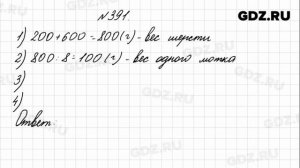 GDZ.RU
№391
1) 200+600=800(г)-вес шерсти
2) 800:8=100(г)-вес одного мотка
3)
4)
Ответ
GDZ.RU
GDZ.RU